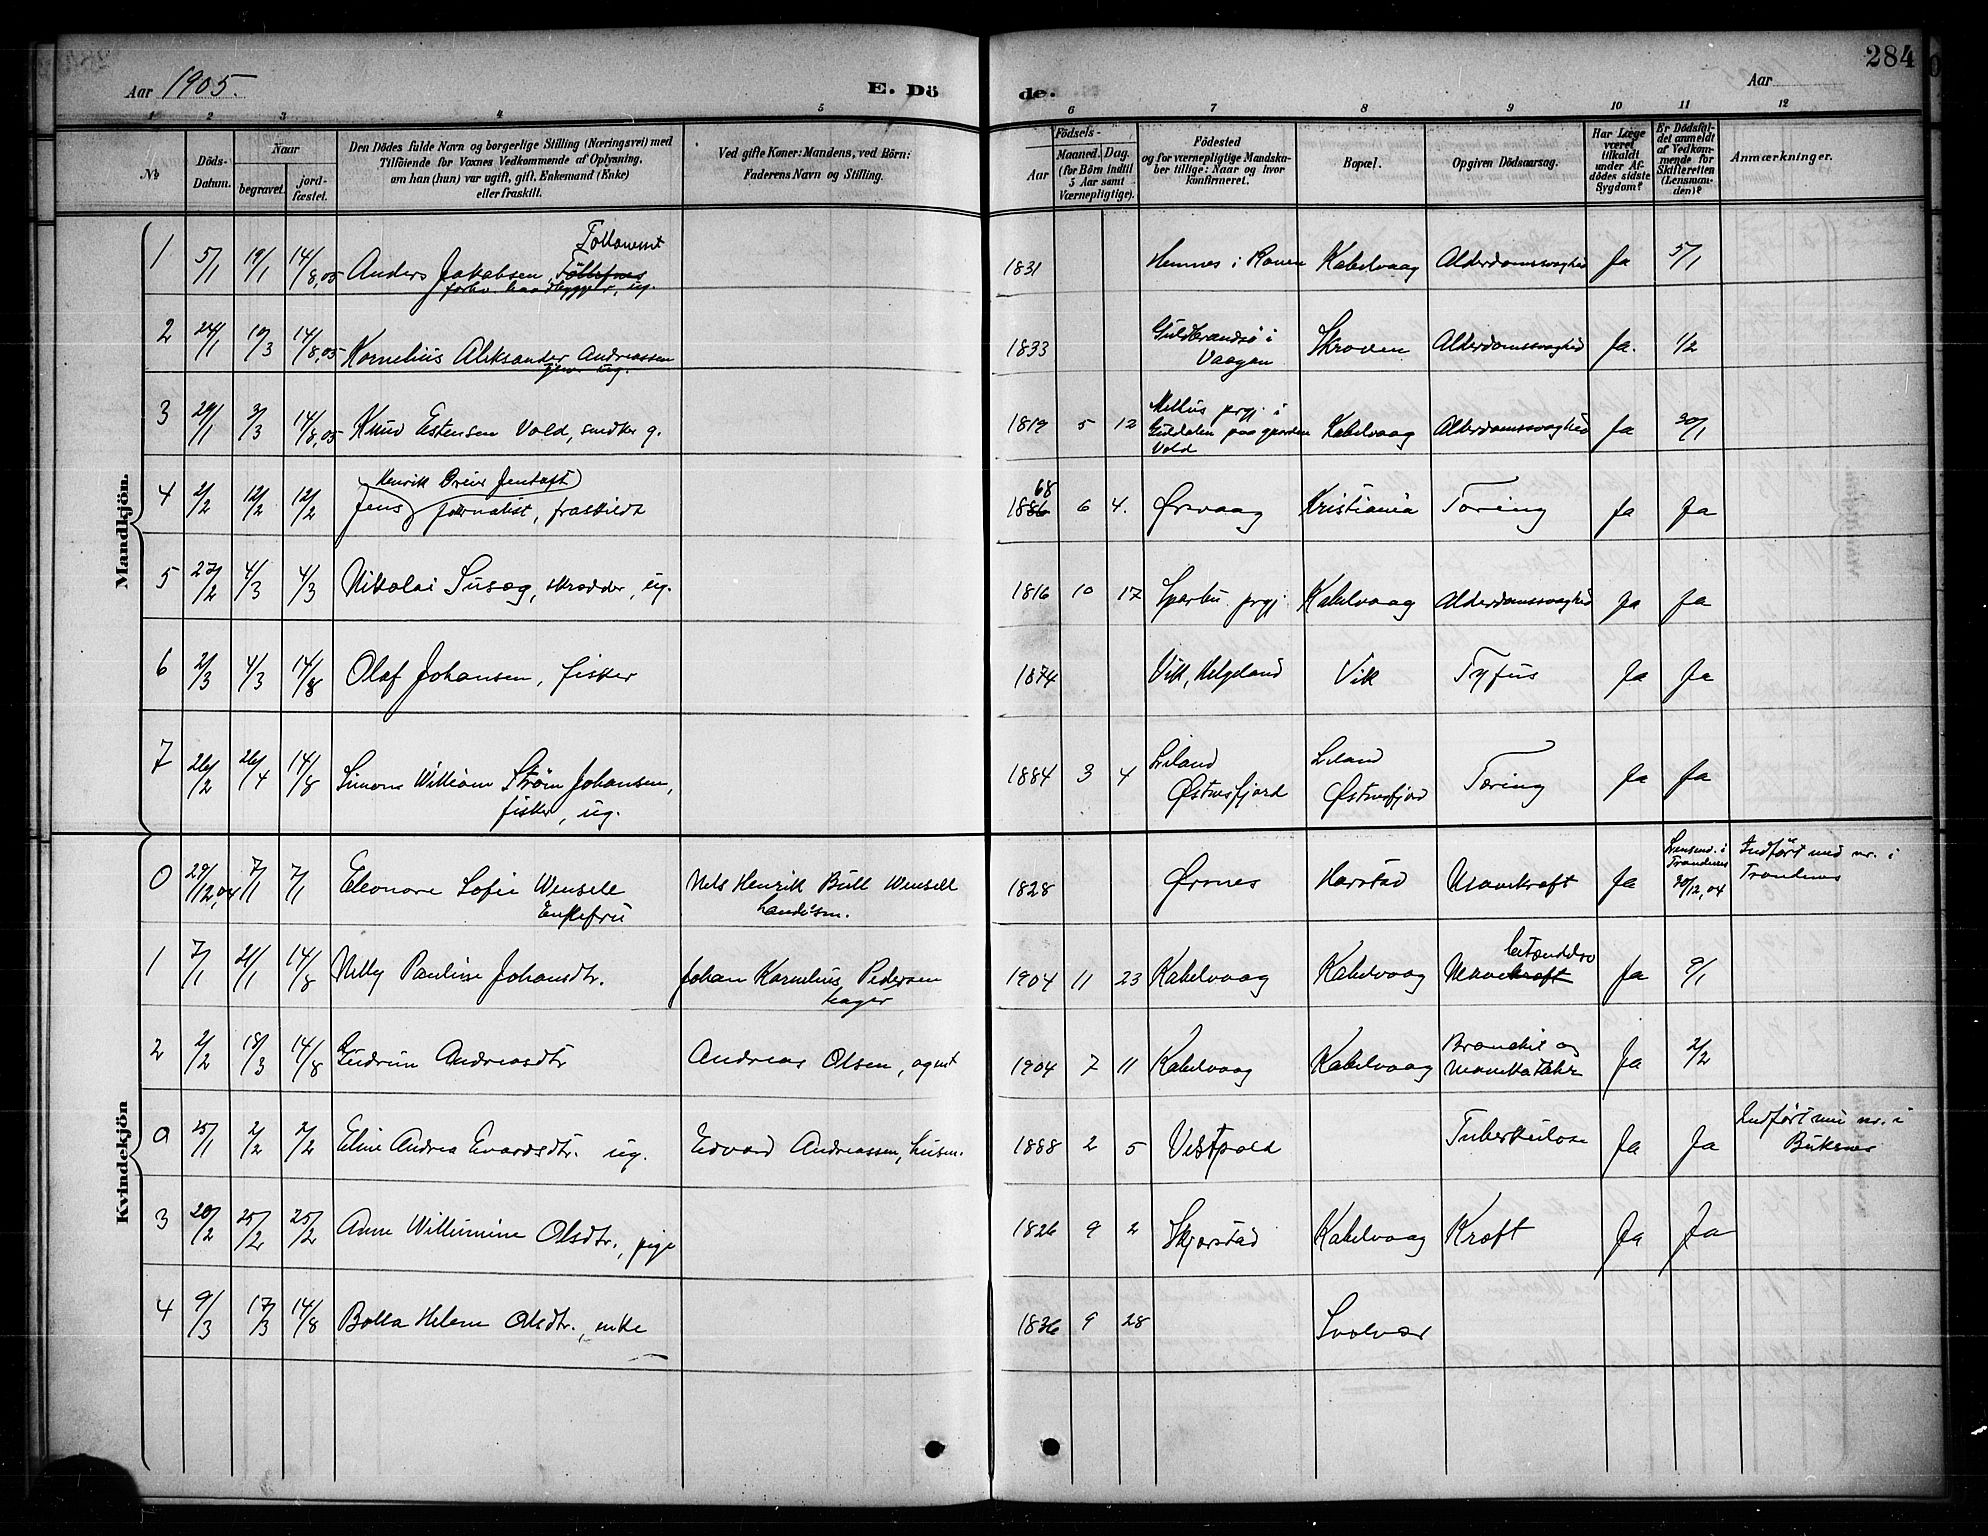 284
Aar 1905.
E. Dö
de.
Aar
1 2 3 4 5 6 7 8 9 10 11 12
No
Döds-Datum.
Naar
begravet.
jord-fæstet.
Den Dödes fulde Navn og borgerlige Stilling (Næringsvei) med
Tilföiende for Voxnes Vedkommende af Oplysning,
om han (hun) var ugift, gift, Enkemand (Enke)
eller fraskilt.
Ved gifte Koner: Mandens, ved Börn:
Faderens Navn og Stilling.
Födsels-
Aar
Maaned. Dag.
(for Börn indtil
5 Aar samt
Værnepligtige).
Födested
og for værnepligtige Mandska-
ber tillige: Naar og hvor
konfirmeret.
Bopæl.
Opgiven Dödsaarsag.
Har Læge
været
tilkaldt
under Af-
dödes sidste
Sygdom?
Er Dödsfal-
det anmeldt
af Vedkom-
mende for
Skifteretten
(Lensman-
den)?
Anmærkninger.
Mandkjön.
1 5/1 19/1 14/8,05 Anders Jakobsen 1831 Hemnes i Ranen Kabelvaag Alderdomssvaghed Ja 5/1
forhv. baadbygger, ug.
2 24/1 10/3 14/8,05 Kornelius Aleksander Andreassen 1833 Guldbrandsø i Vaagan Skroven Alderdomssvaghed Ja. 1/2
ug.
3 29/1 3/3 14/8,05 Knud Estensen Vold, snedker g. 1819 5 12 Melhus prgj. i
Guldalen paa gaarden
Vold Kabelvaag Alderdomssvaghed Ja 30/1
4 2/2 12/2 12/2 Jens Henrik Greive Jentoft
journalist, fraskildt 1886 68 6 4. Ørsvaag Kristiania Tæring Ja Ja
5 27/2 4/3 4/3 Nikolai Susæg, skrædder, ug. 1816 10 17 Sparbu prgj. Kabelvaag Alderdomssvaghed Ja Ja
6 2/3 4/3 14/8 Olaf Johansen, fisker 1874 Vik, Helgeland Vik Tyfus Ja Ja
7 26/2 26/4 14/8 Simon William Strøm Johansen,
fisker, ug. 1884 3 4 Liland
Østnesfjord Liland
Østnesfjord Tæring Ja Ja
Kvindekjön
0 29/12,04 7/1 7/1 Eleonore Sofie Wensell
Enkefru Nels Henrik Bull Wensell
Landhsm. 1828 Ørsnes Harstad Mavekræft Ja Lensmd. i
Trondenes
30/12,04 Indført med nr. i
Trondenes
1 7/1 21/1 14/8 Nelly Pauline Johansdtr. Johan Kornelius Pedersen
bager 1904 11 23 Kabelvaag Kabelvaag Mavekræft betændelse Ja 9/1
2 2/2 18/3 14/8 Gudrun Andreasdtr Andreas Olsen, agent 1904 7 11 Kabelvaag Kabelvaag Bronchit og
Mavekatahr Ja 2/2
0 25/1 2/2 2/2 Eline Andrea Evardsdtr. ug. Edvard Andreassen, husm. 1888 2 5 Vestpold Tuberkulose Ja Ja Indført med nr. i
Buksnes
3 20/2 25/2 25/2 Anne Willumine Olsdtr., pige 1826 9 2 Skjerstad Kabelvaag Kræft Ja Ja
4 9/3 17/3 14/8 Bolla Helene Olsdtr., enke 1836 9 28 Svolvær